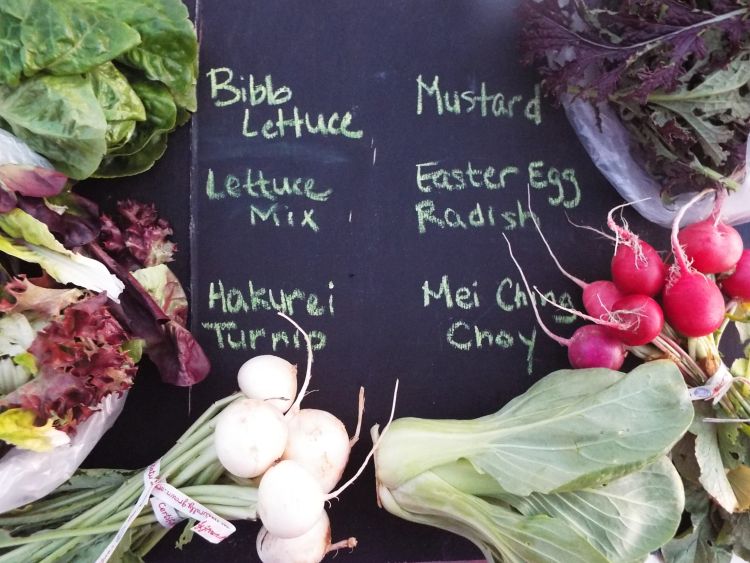 Bibb
Lettuce
Lettuce
Mix
Hakurei
Turnip
Mustard
Easter Egg
Radish
Mei Ching
Choy